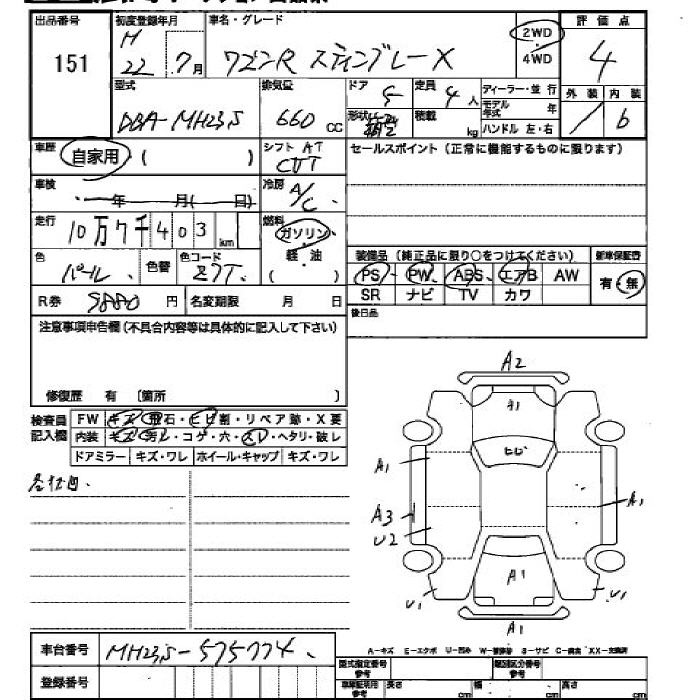 出品番号 初度登録年月 車名・グレード 評価点
151 H 22 年 7月 ワゴンR スティングレーX 2WD 4WD 4
外装 内装
型式 排気量 ドア 定員 ディーラー・並行
DBA-MH23S 660 cc 5 4人 モデル年式 年
形状 積載 kg ハンドル 左・右 b
車歴 シフト AT セールスポイント(正常に機能するものに限ります)
自家用 ( ) CVT
車検 年 月( 日) 冷房 A/C
走行 10万7千403 km 燃料 ガソリン
軽・油
( )
色 パール 色替 色コード Z7T 装備品(純正品に限り○をつけてください) 新車保証書
PS PW ABS エアB AW 有・無
R券 9880 円 名変期限 月 日 SR ナビ TV カワ
注意事項申告欄(不具合内容等は具体的に記入して下さい) 後日品
修復歴 有 〔箇所 〕
検査員 FW キズ・飛石・ヒビ割・リペア跡・X要
記入欄 内装 キズ・汚レ・コゲ・穴・スレ・ヘタリ・破レ
ドアミラー キズ・ワレ ホイール・キャップ キズ・ワレ
A2
A1
ヒビ
A1
A3
U2
A1
A1
U1
U1
A1
車台番号 MH23S-575774
登録番号
A-キズ E-エクボ U-凹み S-サビ
型式指定番号 類別区分番号
長さ cm 幅 cm 高さ cm